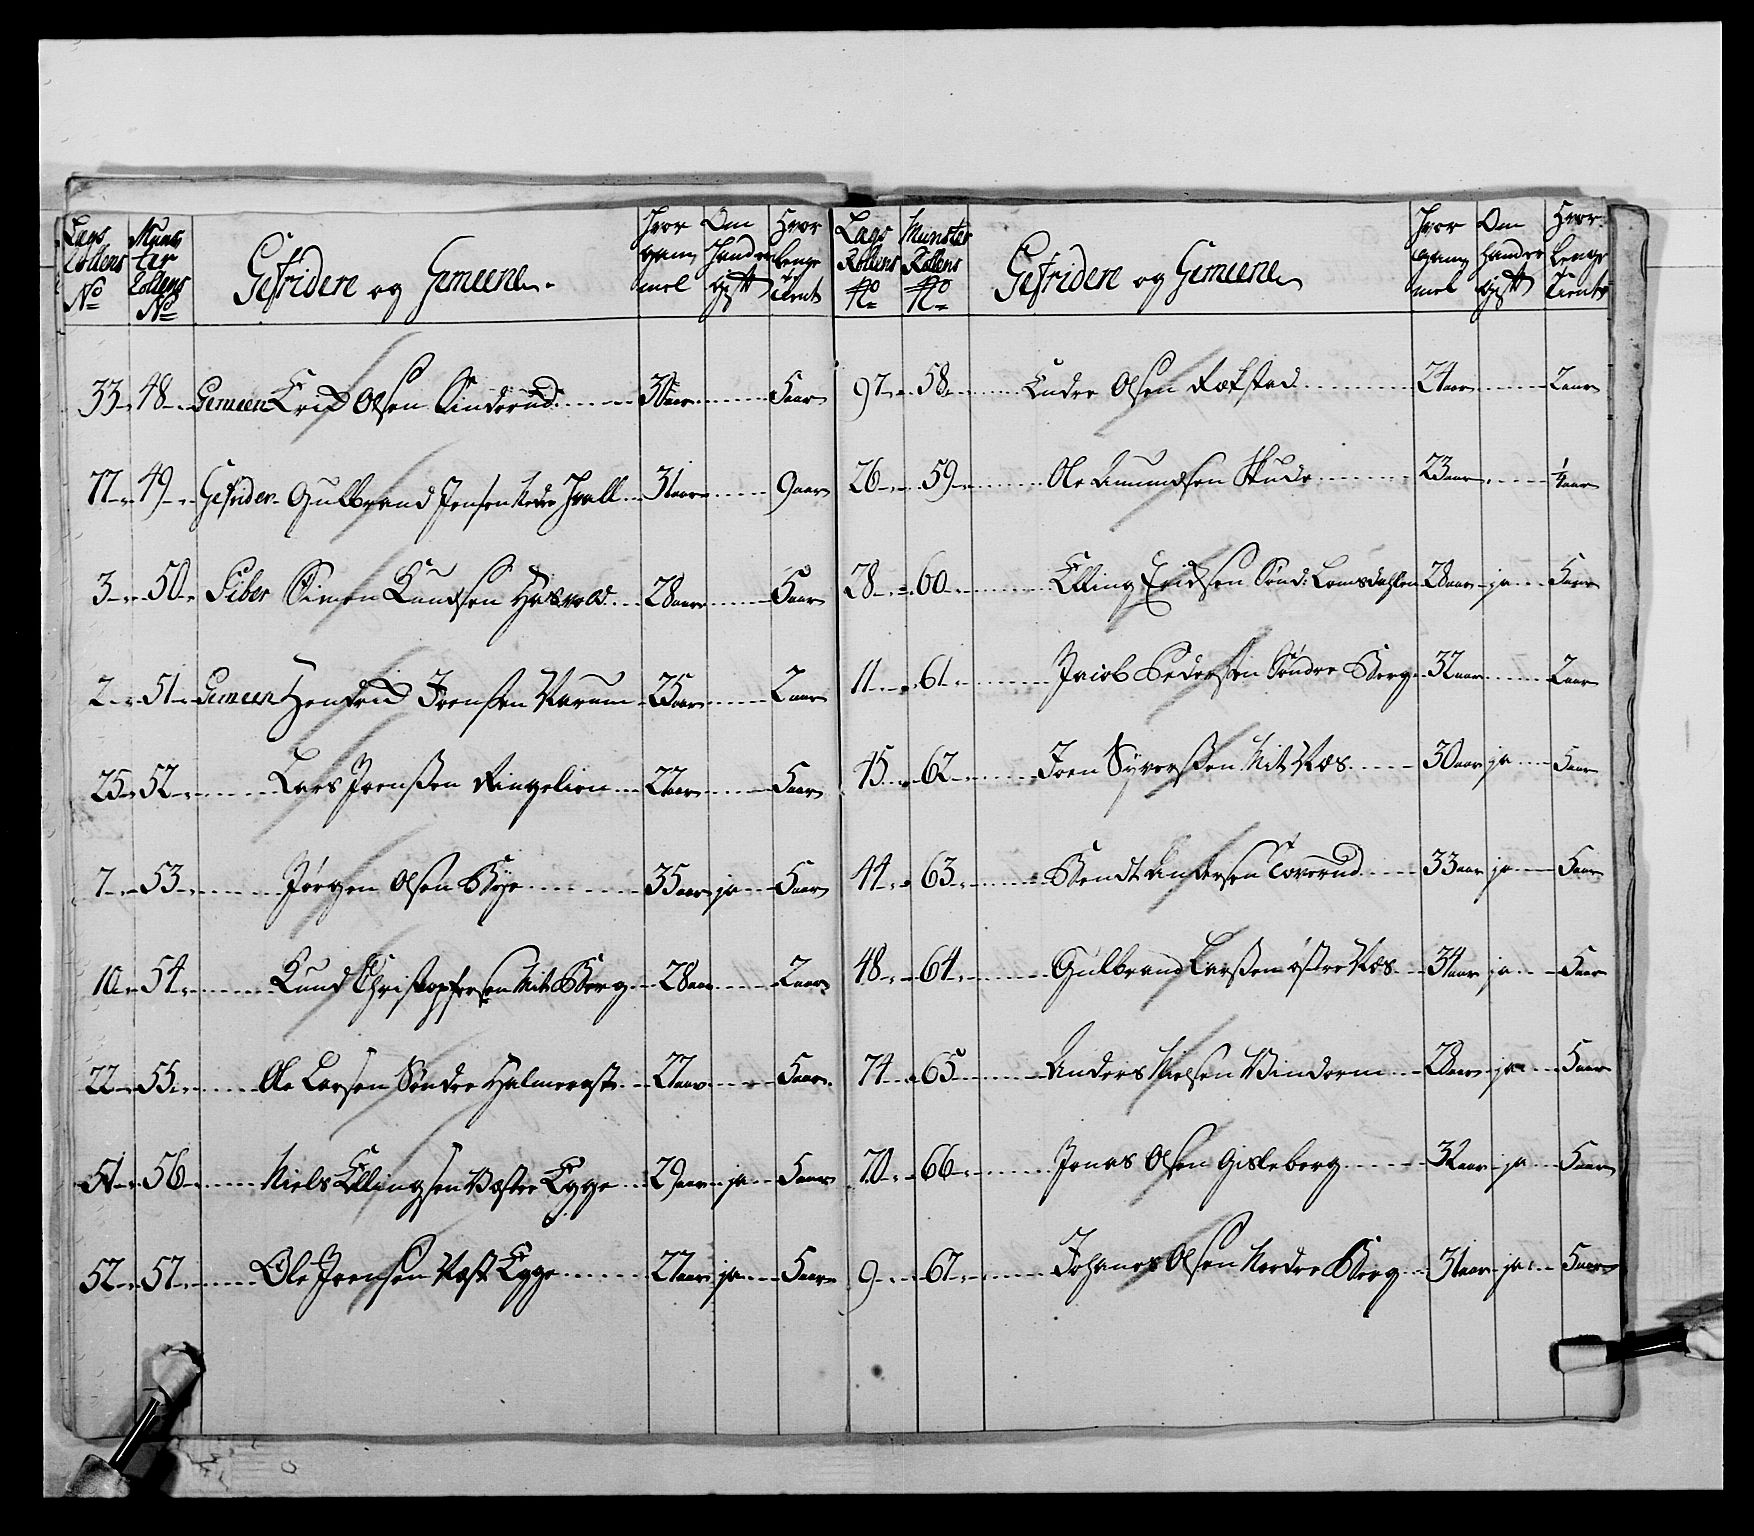 Lags Rollens No
Munster Rollens No
Gefridere og Gemeene
Hvor gammel
Om hand er gift
Hvor lenge tient
33 48 Gemeen Erich Olsen Sinderud 30 aar 5 aar
77 49 Gefrider Gulbrand Jensen Nedre Hvall 31 aar 9 aar
3 50 Piber Simen Knudsen Hasvold 28 aar 5 aar
2 51 Gemeen Henrich Joensen Narum 25 aar 2 aar
25 52 Lars Joenßen Ringelien 22 aar 5 aar
7 53 Jørgen Olsen Bye 35 aar ja 5 aar
10 54 Knud Christophersen Mit Berg 28 aar 2 aar
22 55 Ole Larsen Søndre Halmerast 27 aar 5 aar
51 56 Niels Ellingsen Vestre Egge 29 aar ja 5 aar
52 57 Ole Joensen Vest Egge 27 aar ja 5 aar
Lags Rollens No
Munster Rollens No
Gefridere og Gemeene
Hvor gammel
Om hand er gift
Hvor lenge tient
97 58 Endre Olsen Røkstad 24 aar 2 aar
26 59 Ole Amundsen 23 aar 1/4 aar
28 60 Elling Erichsen Sønd: Lomsdahlen 28 aar ja 5 aar
11 61 Jacob Pedersen Søndre Berg 32 aar 2 aar
45 62 Joen Syverßen Mit Næs 30 aar ja 5 aar
44 63 Bendt Andersen Toverud 33 aar ja 5 aar
48 64 Gulbrand Larßen østre Næs 34 aar ja 5 aar
74 65 Anders Nielsen Vinderen 28 aar ja 5 aar
70 66 Jonas Olsen Gisleberg 32 aar ja 5 aar
9 67 Johanes Olsen Nordre Berg 31 aar ja 5 aar